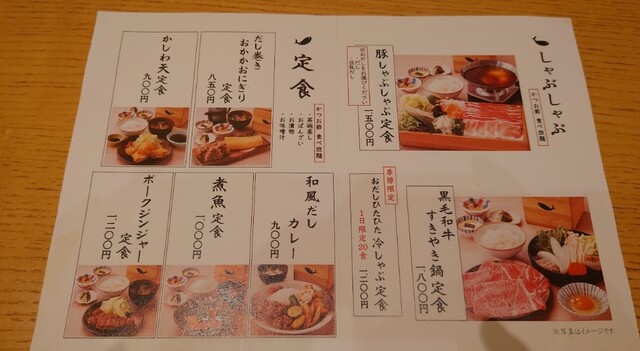 しゃぶしゃぶ
かつお節 食べ放題
豚しゃぶしゃぶ定食
一五〇〇円
黒毛和牛
すきやき鍋定食
一八〇〇円
季節限定
おだしひたひた 冷しゃぶ定食
1日限定20食
一二〇〇円
※写真はイメージです
定食
かつお節 食べ放題
・茶碗蒸し
・おばんざい
・お漬物
・お味噌汁
だし巻き
おかかおにぎり
定食
八五〇円
かしわ天定食
九〇〇円
和風だし
カレー
九〇〇円
煮魚定食
一〇〇〇円
ポークジンジャー
定食
一二〇〇円